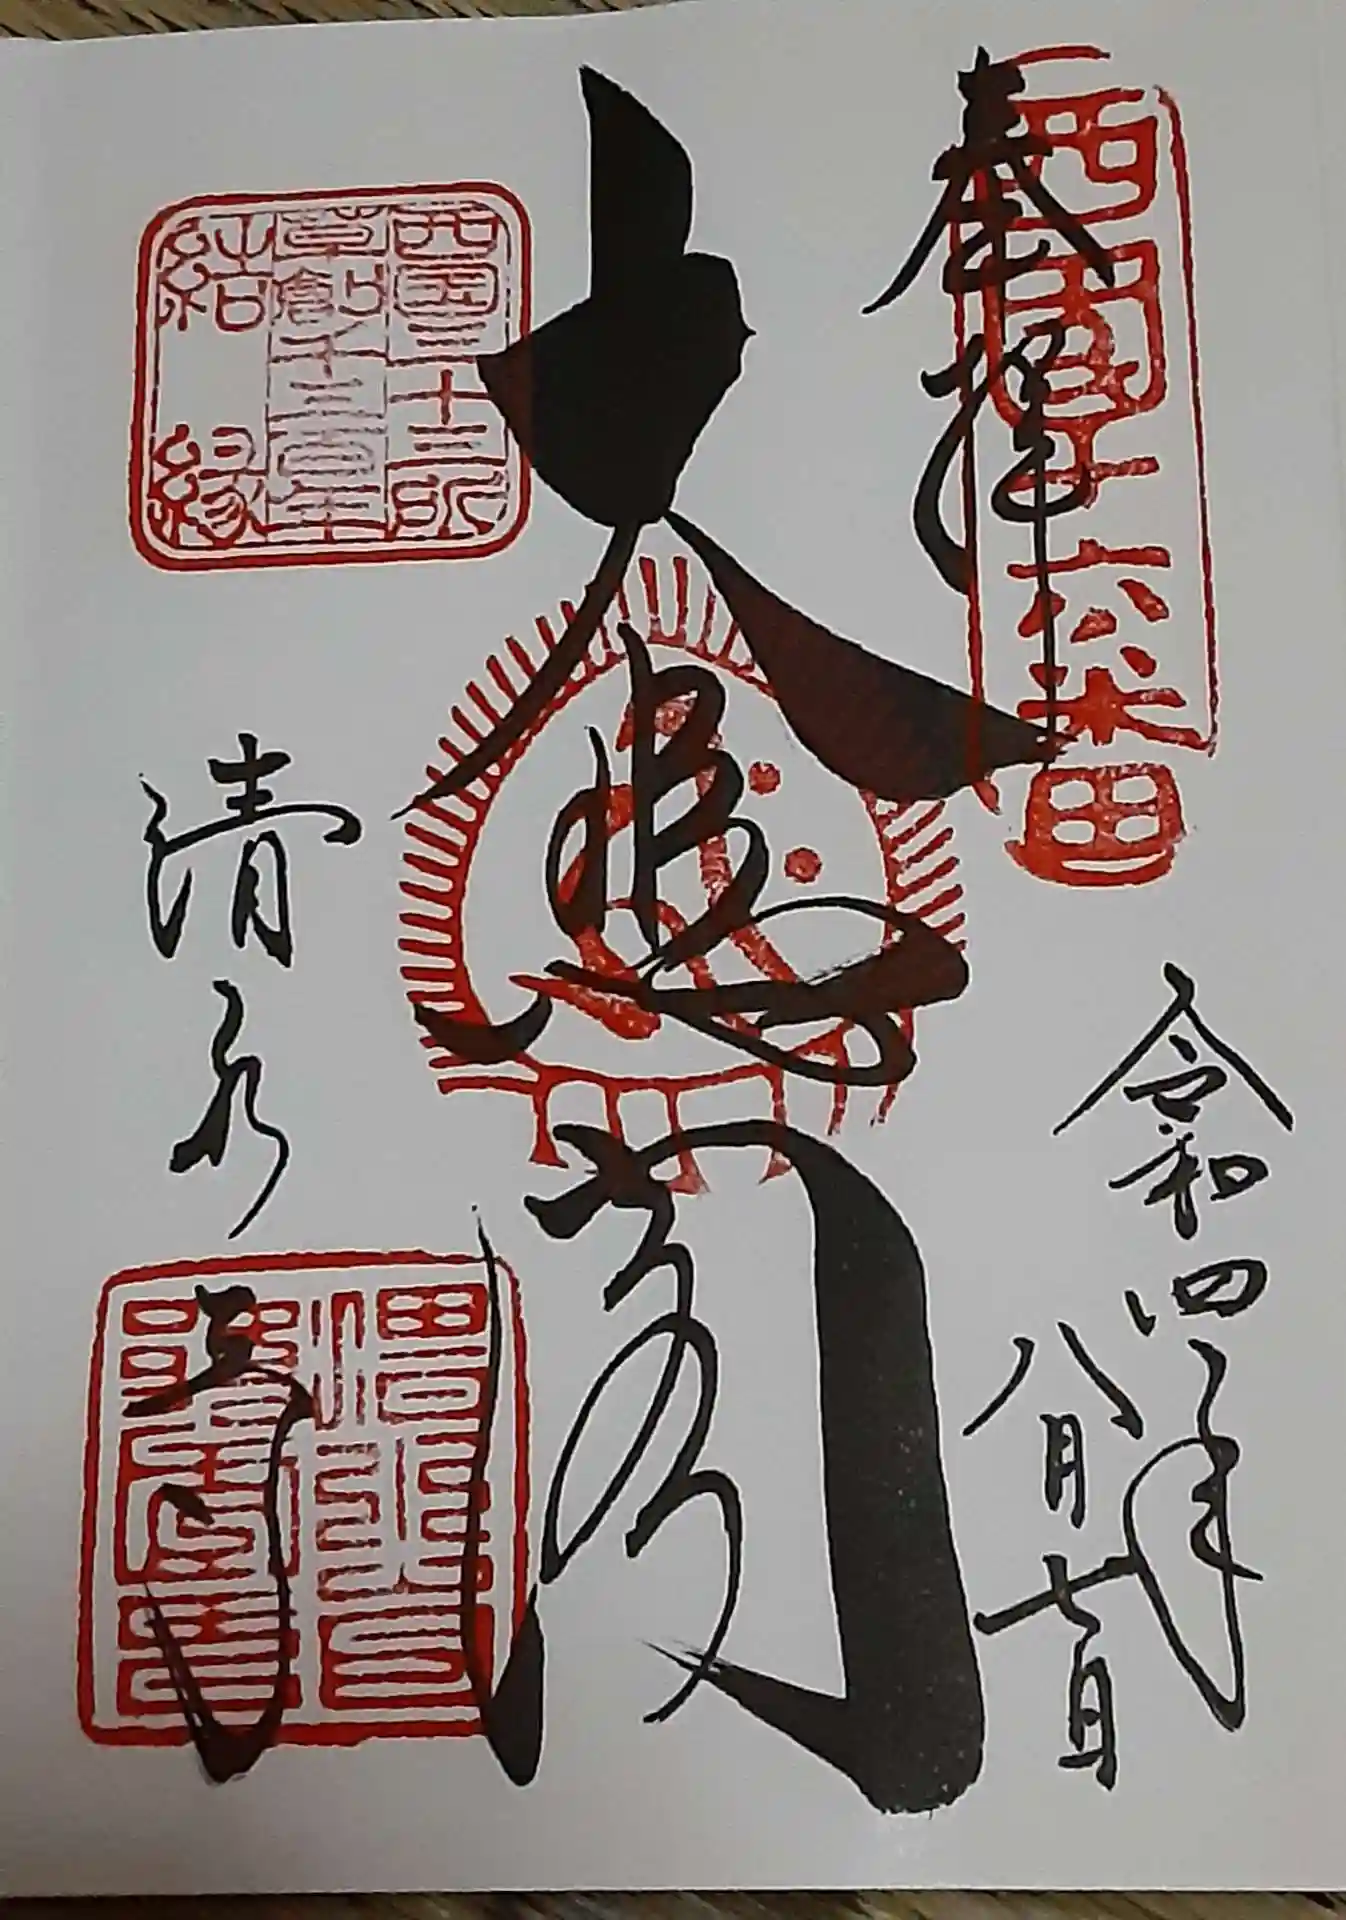 奉拝
西国十六番
令和四年
八月七日
大悲閣
西国三十三所
草創千三百年
結縁
清水寺